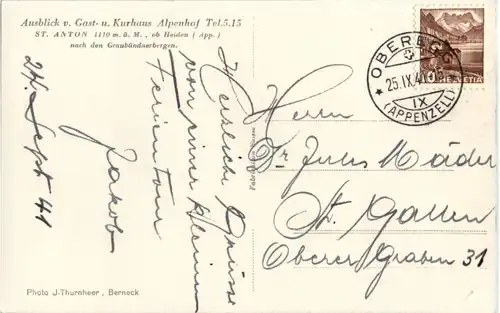 Ausblick v. Gast- u. Kurhaus Alpenhof Tel.5.15
ST. ANTON 1110 m.ü.M., ob Heiden (App.)
nach den Graubündnerbergen.
24. Sept 41
Herzliche Grüsse
von einer kleinen
Ferientour
Jakob
Photo J.Thurnheer, Berneck
HELVETIA
OBEREGG
25.IX.41
IX
(APPENZELL)
Herrn
Dr Jules Mäder
St. Gallen
Oberer Graben 31